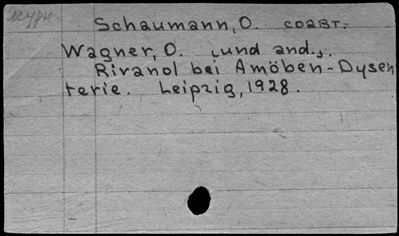 Schaumann, O. соавт.
Wagner, O. [und and.].
Rivanol bei Amöben-Dysen
terie. Leipzig, 1928.